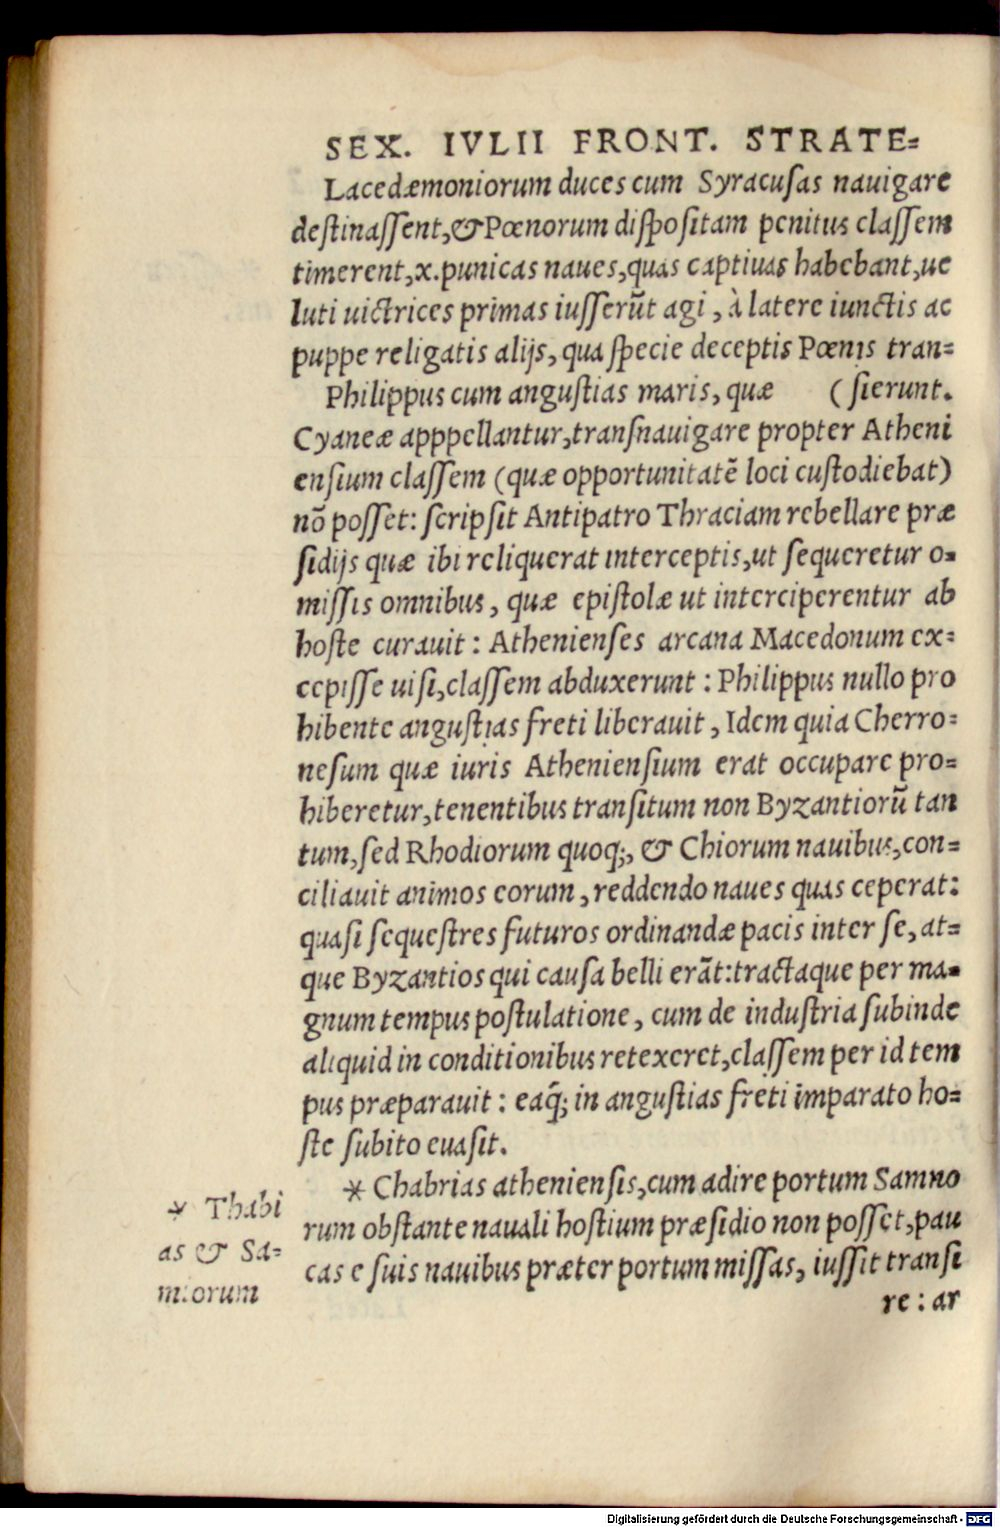 SEX. IVLII FRONT. STRATE=
Lacedæmoniorum duces cum Syracuſas nauigare
deſtinaſſent,& Pœnorum diſpoſitam penitus claſſem
timerent,x.punicas naues,quas captiuas habebant,ue
luti uictrices primas iuſſerũt agi, à latere iunctis ac
puppe religatis alijs, qua ſpecie deceptis Pœnis tran=
Philippus cum anguſtias maris, quæ (ſierunt.
Cyaneæ apppellantur,tranſnauigare propter Atheni
enſium claſſem (quæ opportunitatẽ loci cuſtodiebat)
nõ poſſet: ſcripſit Antipatro Thraciam rebellare præ
ſidijs quæ ibi reliquerat interceptis,ut ſequeretur o=
miſſis omnibus, quæ epiſtolæ ut interciperentur ab
hoſte curauit: Athenienſes arcana Macedonum ex=
cepiſſe uiſi,claſſem abduxerunt: Philippus nullo pro
hibente anguſtias freti liberauit, Idem quia Cherro=
neſum quæ iuris Athenienſium erat occupare pro=
hiberetur,tenentibus tranſitum non Byzantiorũ tan
tum,ſed Rhodiorum quoq;, & Chiorum nauibus,con=
ciliauit animos eorum,reddendo naues quas ceperat:
quaſi ſequeſtres futuros ordinandæ pacis inter ſe, at=
que Byzantios qui cauſa belli erãt:tractaque per ma=
gnum tempus poſtulatione, cum de induſtria ſubinde
aliquid in conditionibus retexeret,claſſem per id tem
pus præparauit: eaq̃; in anguſtias freti imparato ho=
ſte ſubito euaſit.
* Chabrias athenienſis,cum adire portum Samno
rum obſtante nauali hoſtium præſidio non poſſet,pau
cas e ſuis nauibus præter portum miſſas, iuſſit tranſi
re: ar
* Thabi
as & Sa=
miorum
Digitalisierung gefördert durch die Deutsche Forschungsgemeinschaft - DFG